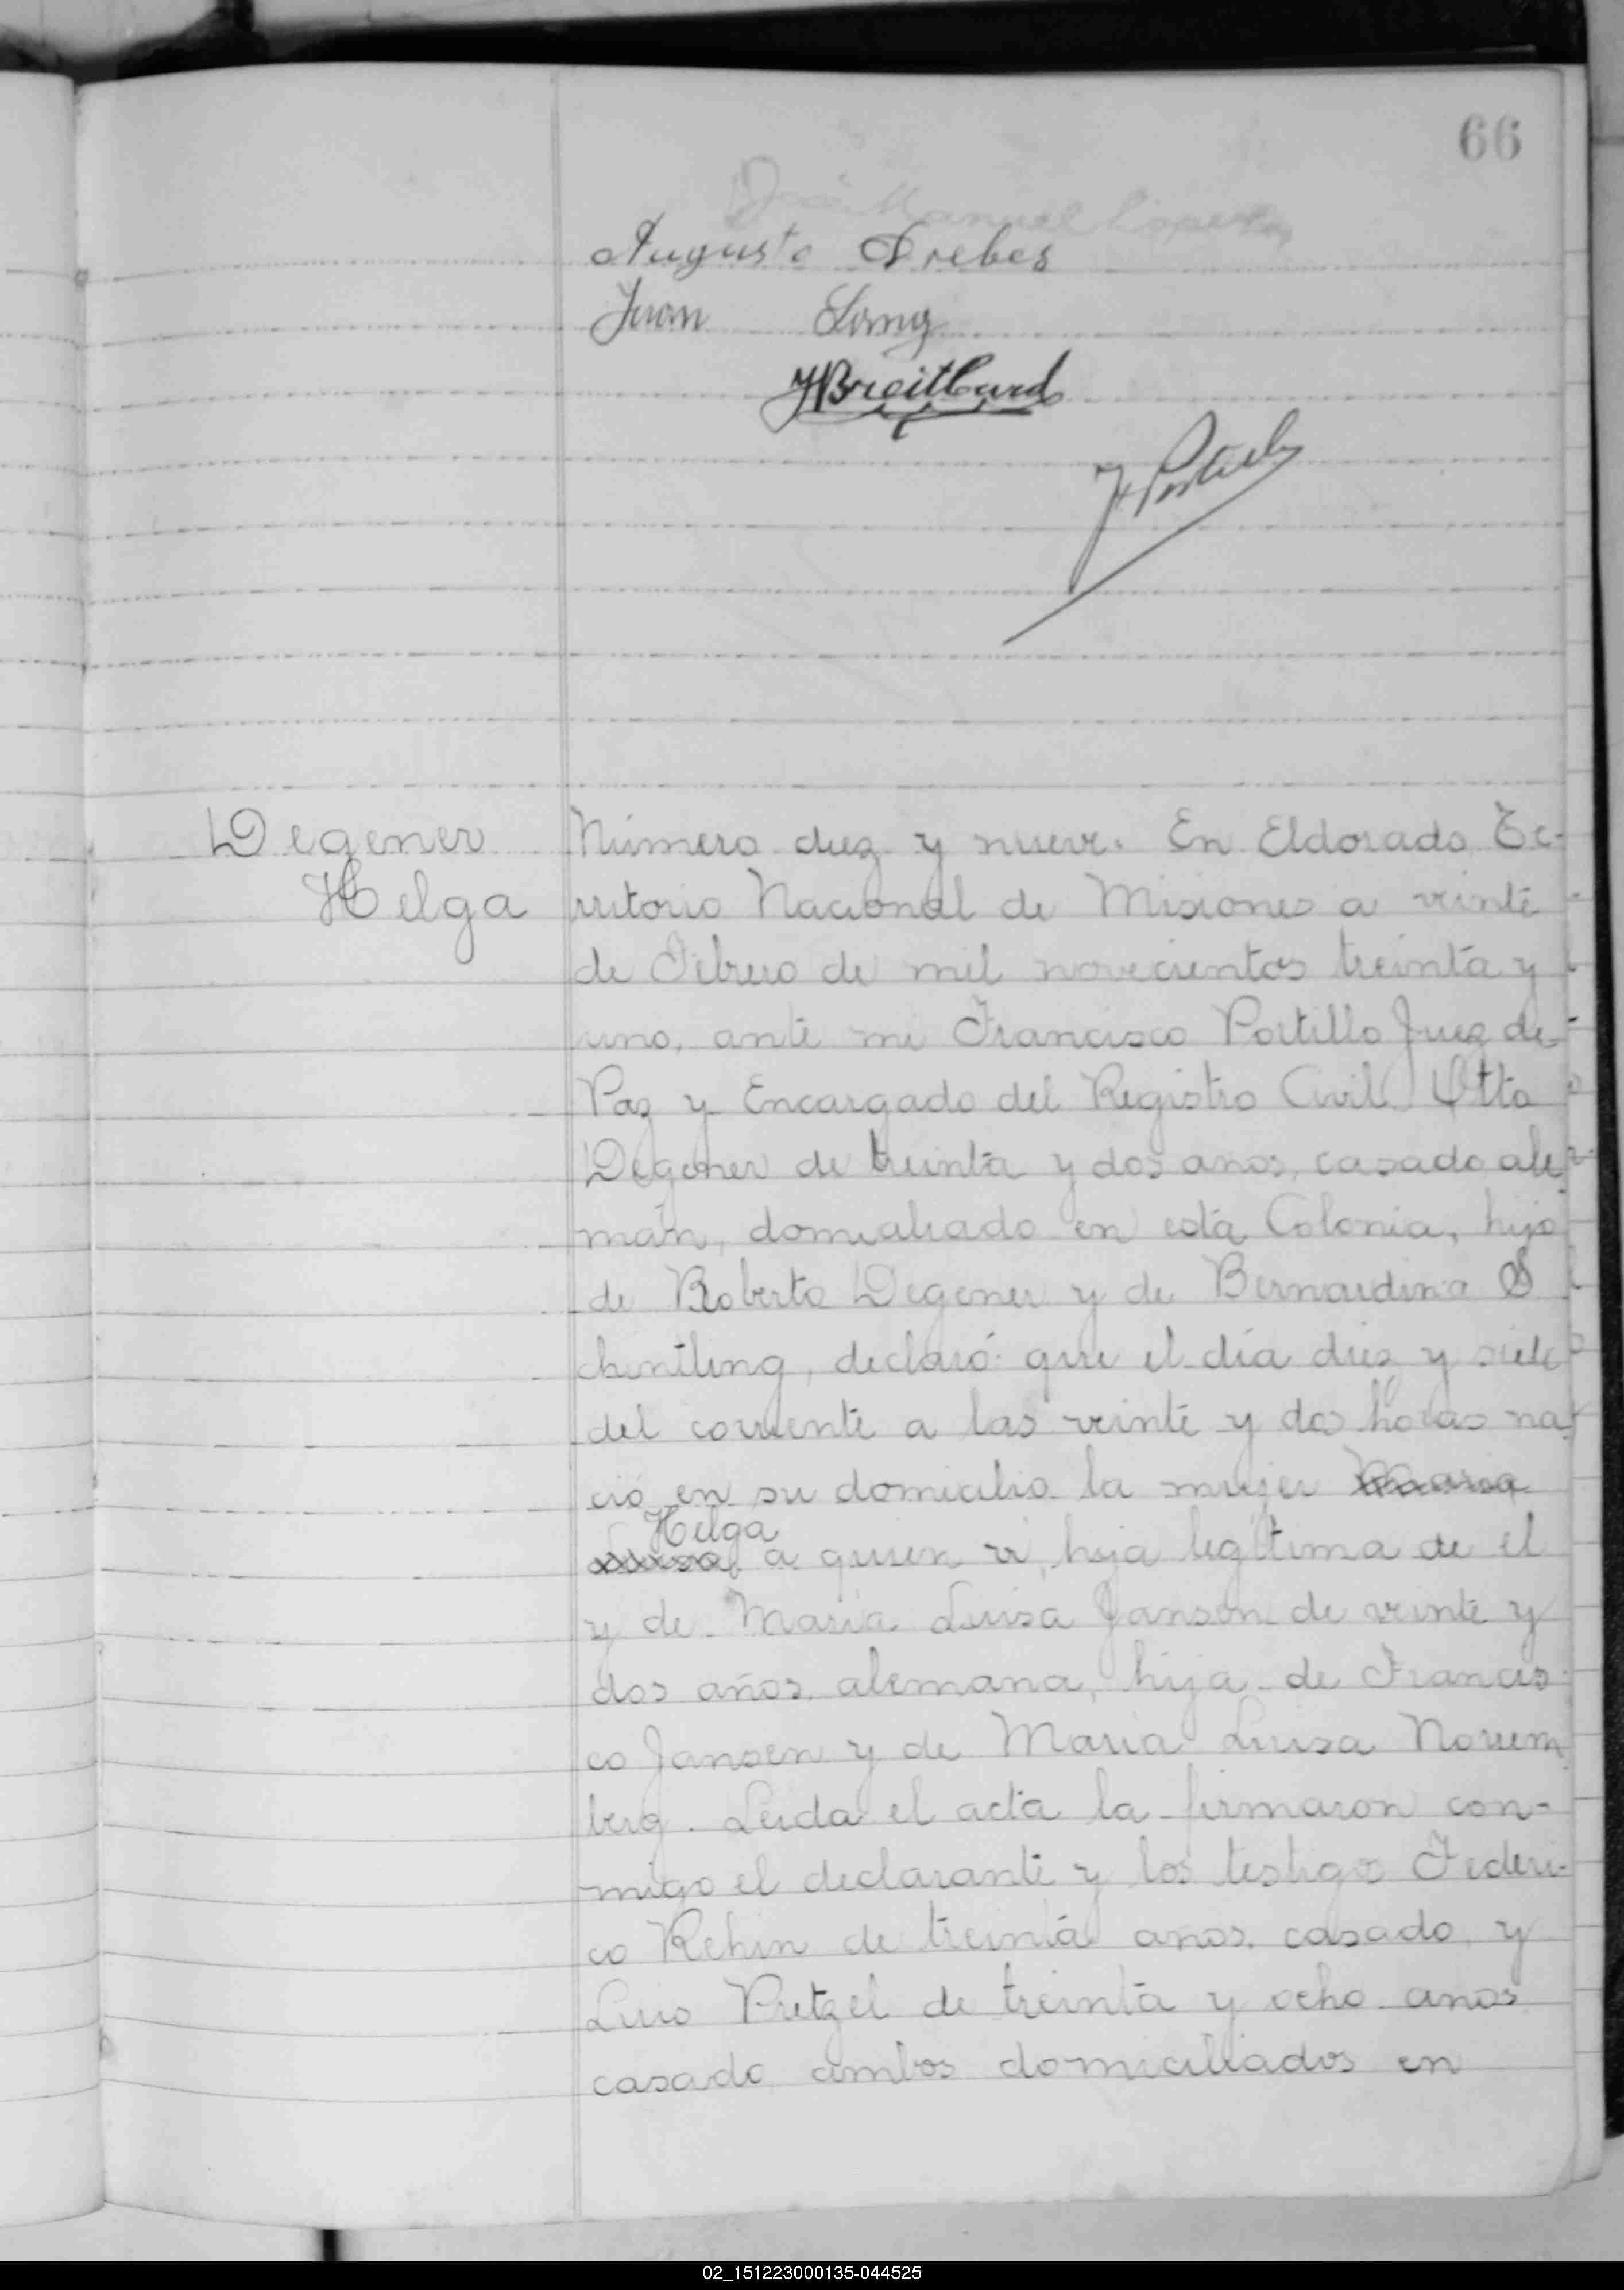 66
José Manuel Lopez
Augusto Drebes
Juan Lomy
JBreitburd
F Portillo
Degener
Helga
Número diez y nueve. En Eldorado, Te-
rritorio Nacional de Misiones a veinte
de Febrero de mil novecientos treinta y
uno, ante mi Francisco Portillo Juez de-
Paz y Encargado del Registro Civil Otto
Degener de treinta y dos años, casado ale
mán, domiciliado en esta Colonia, hijo
de Roberto Degener y de Bernardina S
chintling, declaró: que el día diez y siete
del corriente a las veinte y dos horas na
ció en su domicilio la mujer Maria
Helga
Luisa, a quien vi, hija legítima de el
y de Maria Luisa Janson de veinte y
dos años, alemana, hija de Francis
co Jansen y de Maria Luisa Norum
berg. Leida el acta la firmaron con-
migo el declarante y los testigos Federi-
co Rehin de treinta años, casado, y
Luis Pretzel de treinta y ocho años
casado, ambos domiciliados en
02_151223000135-044525